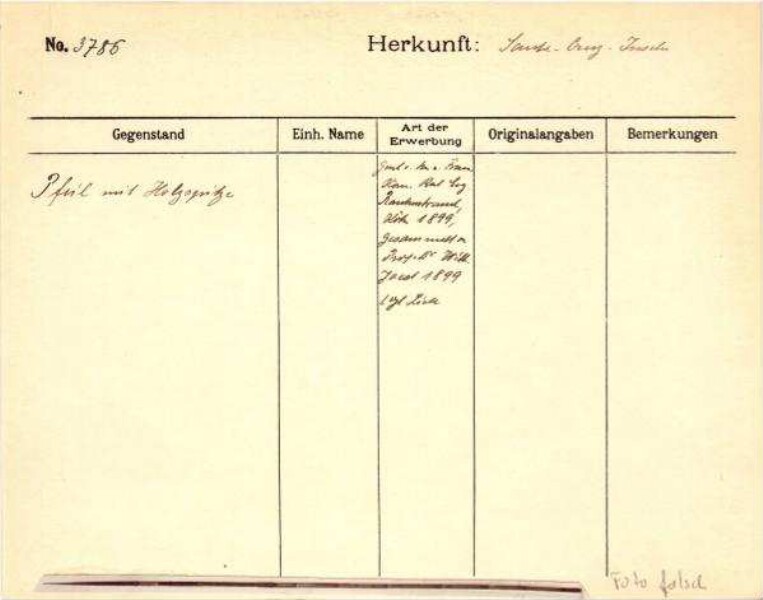 No. 3786 Herkunft: Santa-Cruz-Inseln
Gegenstand Einh. Name Art der Erwerbung Originalangaben Bemerkungen
Pfeil mit Holzspitze
Frau
Rautenstrauch,
Köln 1899,
gesammelt v
Prof. Dr Wilh.
Joest 1899
Foto falsch